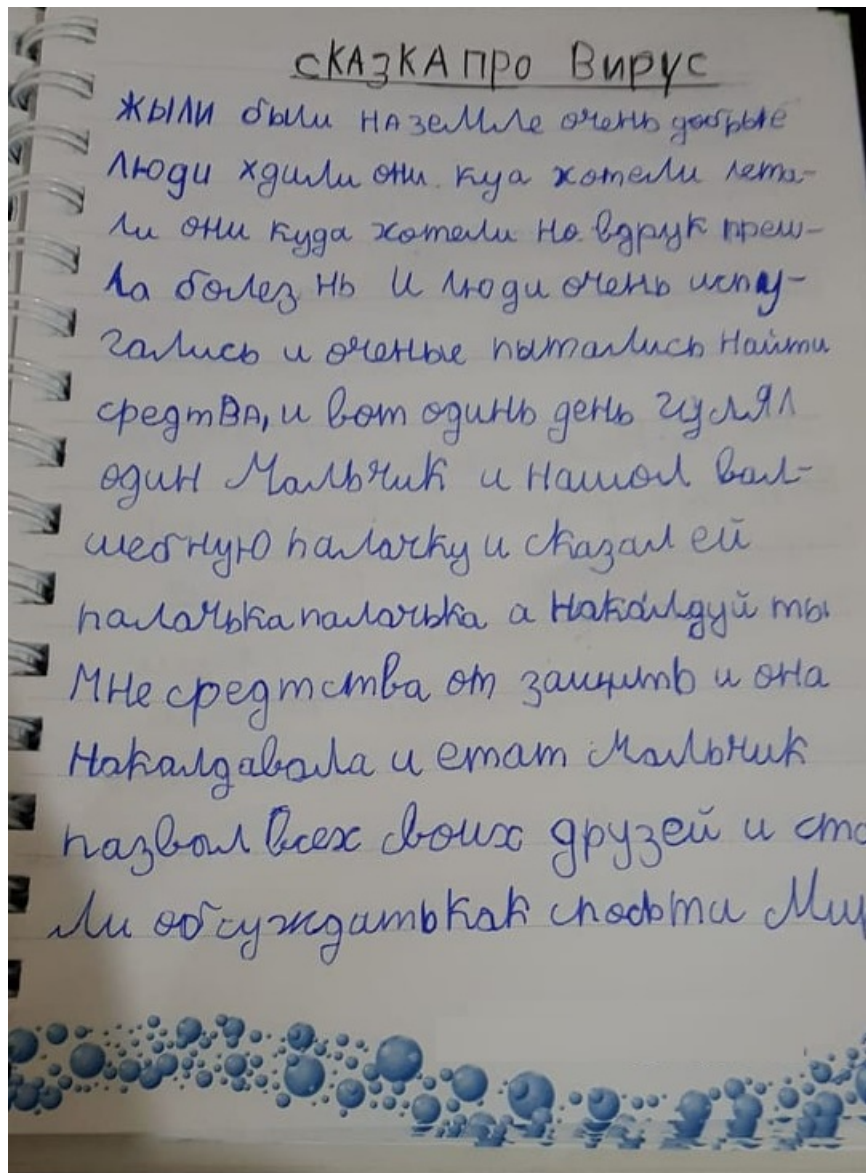 сКАЗКА про Вирус
жыли были на земле очень добрые
люди хдили они. куа хотели лета-
ли они куда хотели но вдрук преш-
ла болез нь И люди очень испу-
гались и оченые пытались найти
средтва, и вот одинь день гулял
один Мальчик и нашол вал-
шебную палачку и сказал ей
палачька палачька а накалдуй ты
Мне средтства от защить и она
Накалдавала и етат Мальчик
пазвал всех своих друзей и ста
ли обсуждать как Ми